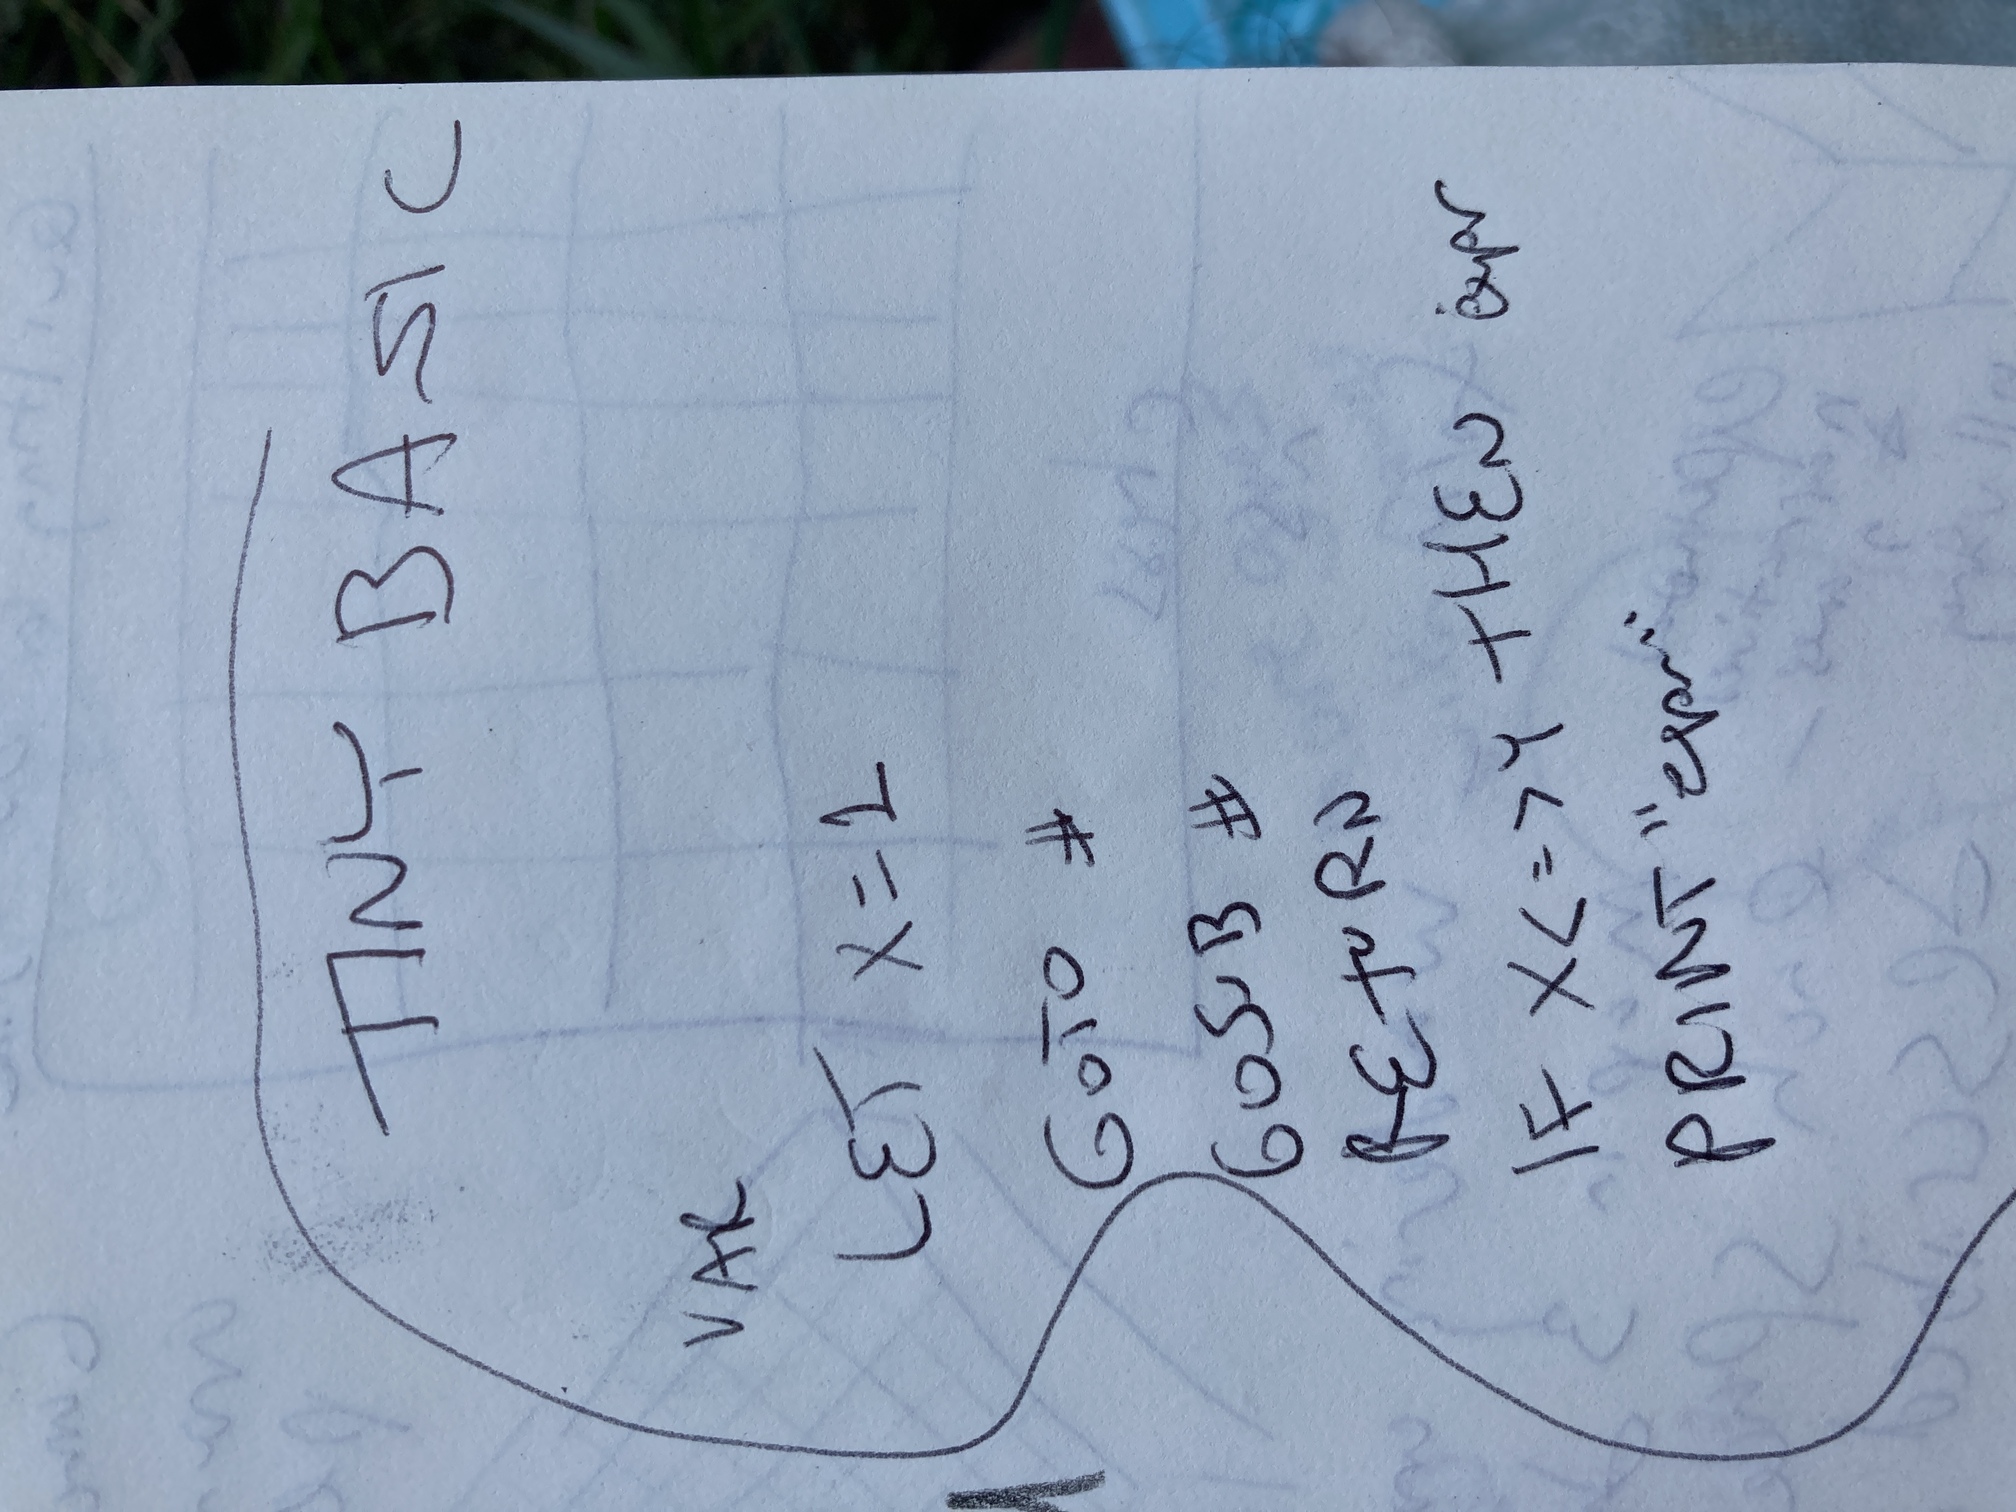 TINY BASIC
VAR
LET X=1
GOTO #
GOSUB #
RETURN
IF X<=>Y THEN expr
PRINT "expr"